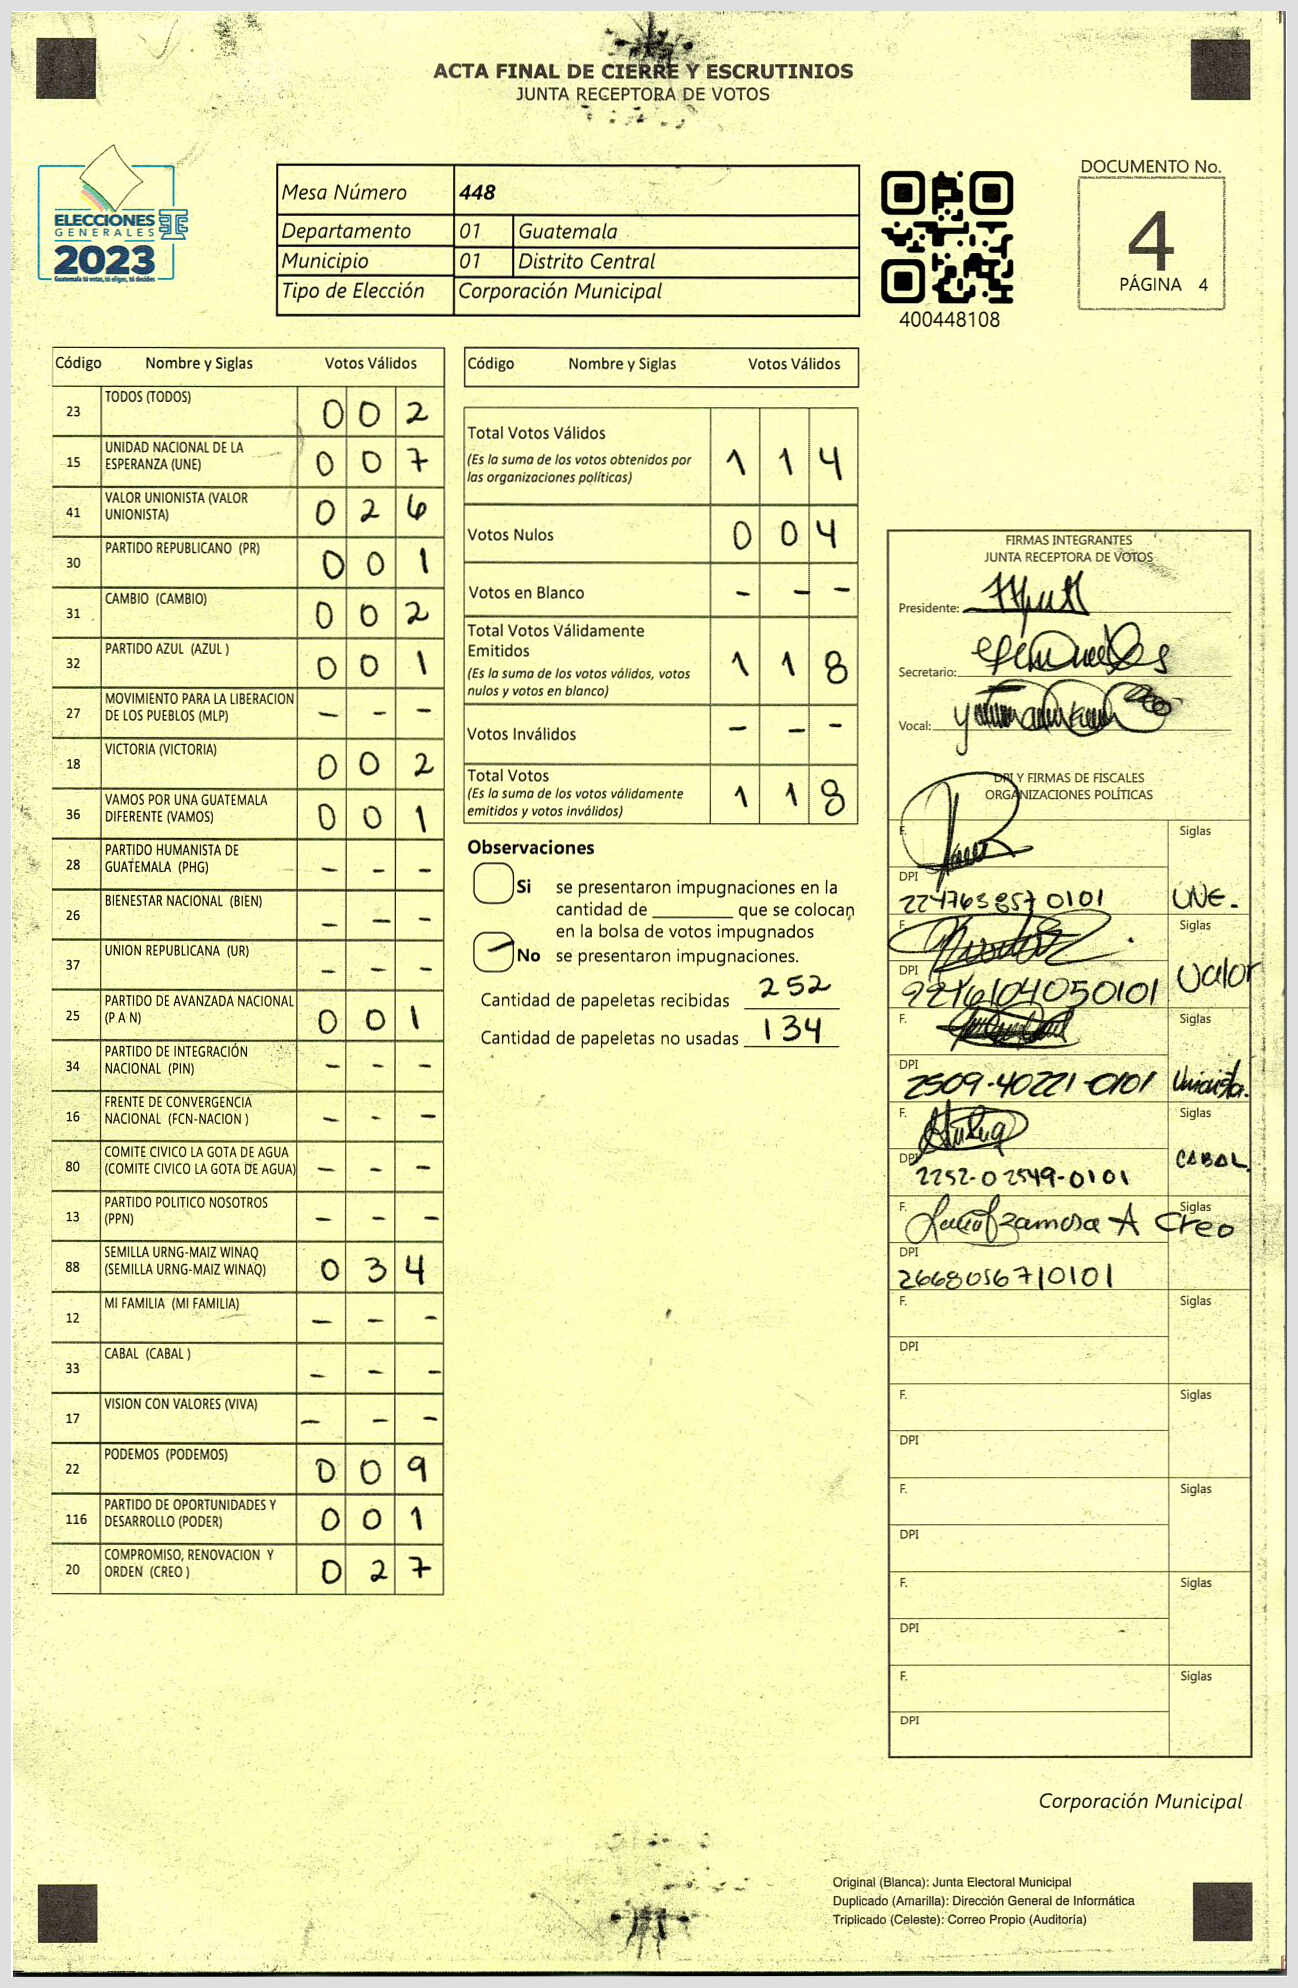 ACTA FINAL DE CIERRE Y ESCRUTINIOS
JUNTA RECEPTORA DE VOTOS
ELECCIONES
GENERALES
2023
Guatemala tú votas, tú eliges, tú decides
Mesa Número 448
Departamento 01 Guatemala
Municipio 01 Distrito Central
Tipo de Elección Corporación Municipal
400448108
DOCUMENTO No.
4
PÁGINA 4
Código Nombre y Siglas Votos Válidos
23 TODOS (TODOS) 0 0 2
15 UNIDAD NACIONAL DE LA
ESPERANZA (UNE) 0 0 7
41 VALOR UNIONISTA (VALOR
UNIONISTA) 0 2 6
30 PARTIDO REPUBLICANO (PR) 0 0 1
31 CAMBIO (CAMBIO) 0 0 2
32 PARTIDO AZUL (AZUL ) 0 0 1
27 MOVIMIENTO PARA LA LIBERACION
DE LOS PUEBLOS (MLP) - - -
18 VICTORIA (VICTORIA) 0 0 2
36 VAMOS POR UNA GUATEMALA
DIFERENTE (VAMOS) 0 0 1
28 PARTIDO HUMANISTA DE
GUATEMALA (PHG) - - -
26 BIENESTAR NACIONAL (BIEN) - - -
37 UNION REPUBLICANA (UR) - - -
25 PARTIDO DE AVANZADA NACIONAL
(P A N) 0 0 1
34 PARTIDO DE INTEGRACIÓN
NACIONAL (PIN) - - -
16 FRENTE DE CONVERGENCIA
NACIONAL (FCN-NACION ) - - -
80 COMITE CIVICO LA GOTA DE AGUA
(COMITE CIVICO LA GOTA DE AGUA) - - -
13 PARTIDO POLITICO NOSOTROS
(PPN) - - -
88 SEMILLA URNG-MAIZ WINAQ
(SEMILLA URNG-MAIZ WINAQ) 0 3 4
12 MI FAMILIA (MI FAMILIA) - - -
33 CABAL (CABAL ) - - -
17 VISION CON VALORES (VIVA) - - -
22 PODEMOS (PODEMOS) 0 0 9
116 PARTIDO DE OPORTUNIDADES Y
DESARROLLO (PODER) 0 0 1
20 COMPROMISO, RENOVACION Y
ORDEN (CREO ) 0 2 7
Código Nombre y Siglas Votos Válidos
Total Votos Válidos
(Es la suma de los votos obtenidos por
las organizaciones políticas) 1 1 4
Votos Nulos 0 0 4
Votos en Blanco - - -
Total Votos Válidamente
Emitidos
(Es la suma de los votos válidos, votos
nulos y votos en blanco) 1 1 8
Votos Inválidos - - -
Total Votos
(Es la suma de los votos válidamente
emitidos y votos inválidos) 1 1 8
Observaciones
Si se presentaron impugnaciones en la
cantidad de ________ que se colocan
en la bolsa de votos impugnados
No se presentaron impugnaciones.
Cantidad de papeletas recibidas 252
Cantidad de papeletas no usadas 134
FIRMAS INTEGRANTES
JUNTA RECEPTORA DE VOTOS
Presidente:
Secretario:
Vocal:
DPI Y FIRMAS DE FISCALES
ORGANIZACIONES POLÍTICAS
F. Siglas
DPI
224763857 0101 UNE.
F. Siglas
DPI Valor
F. Siglas
DPI
2509-40221-0101 Unionista.
F. Siglas
DPI CABAL
2252-02549-0101
F. Siglas
Zamora A Creo
DPI
2668056710101
F. Siglas
DPI
F. Siglas
DPI
F. Siglas
DPI
F. Siglas
DPI
F. Siglas
DPI
Corporación Municipal
Original (Blanca): Junta Electoral Municipal
Duplicado (Amarilla): Dirección General de Informática
Triplicado (Celeste): Correo Propio (Auditoría)